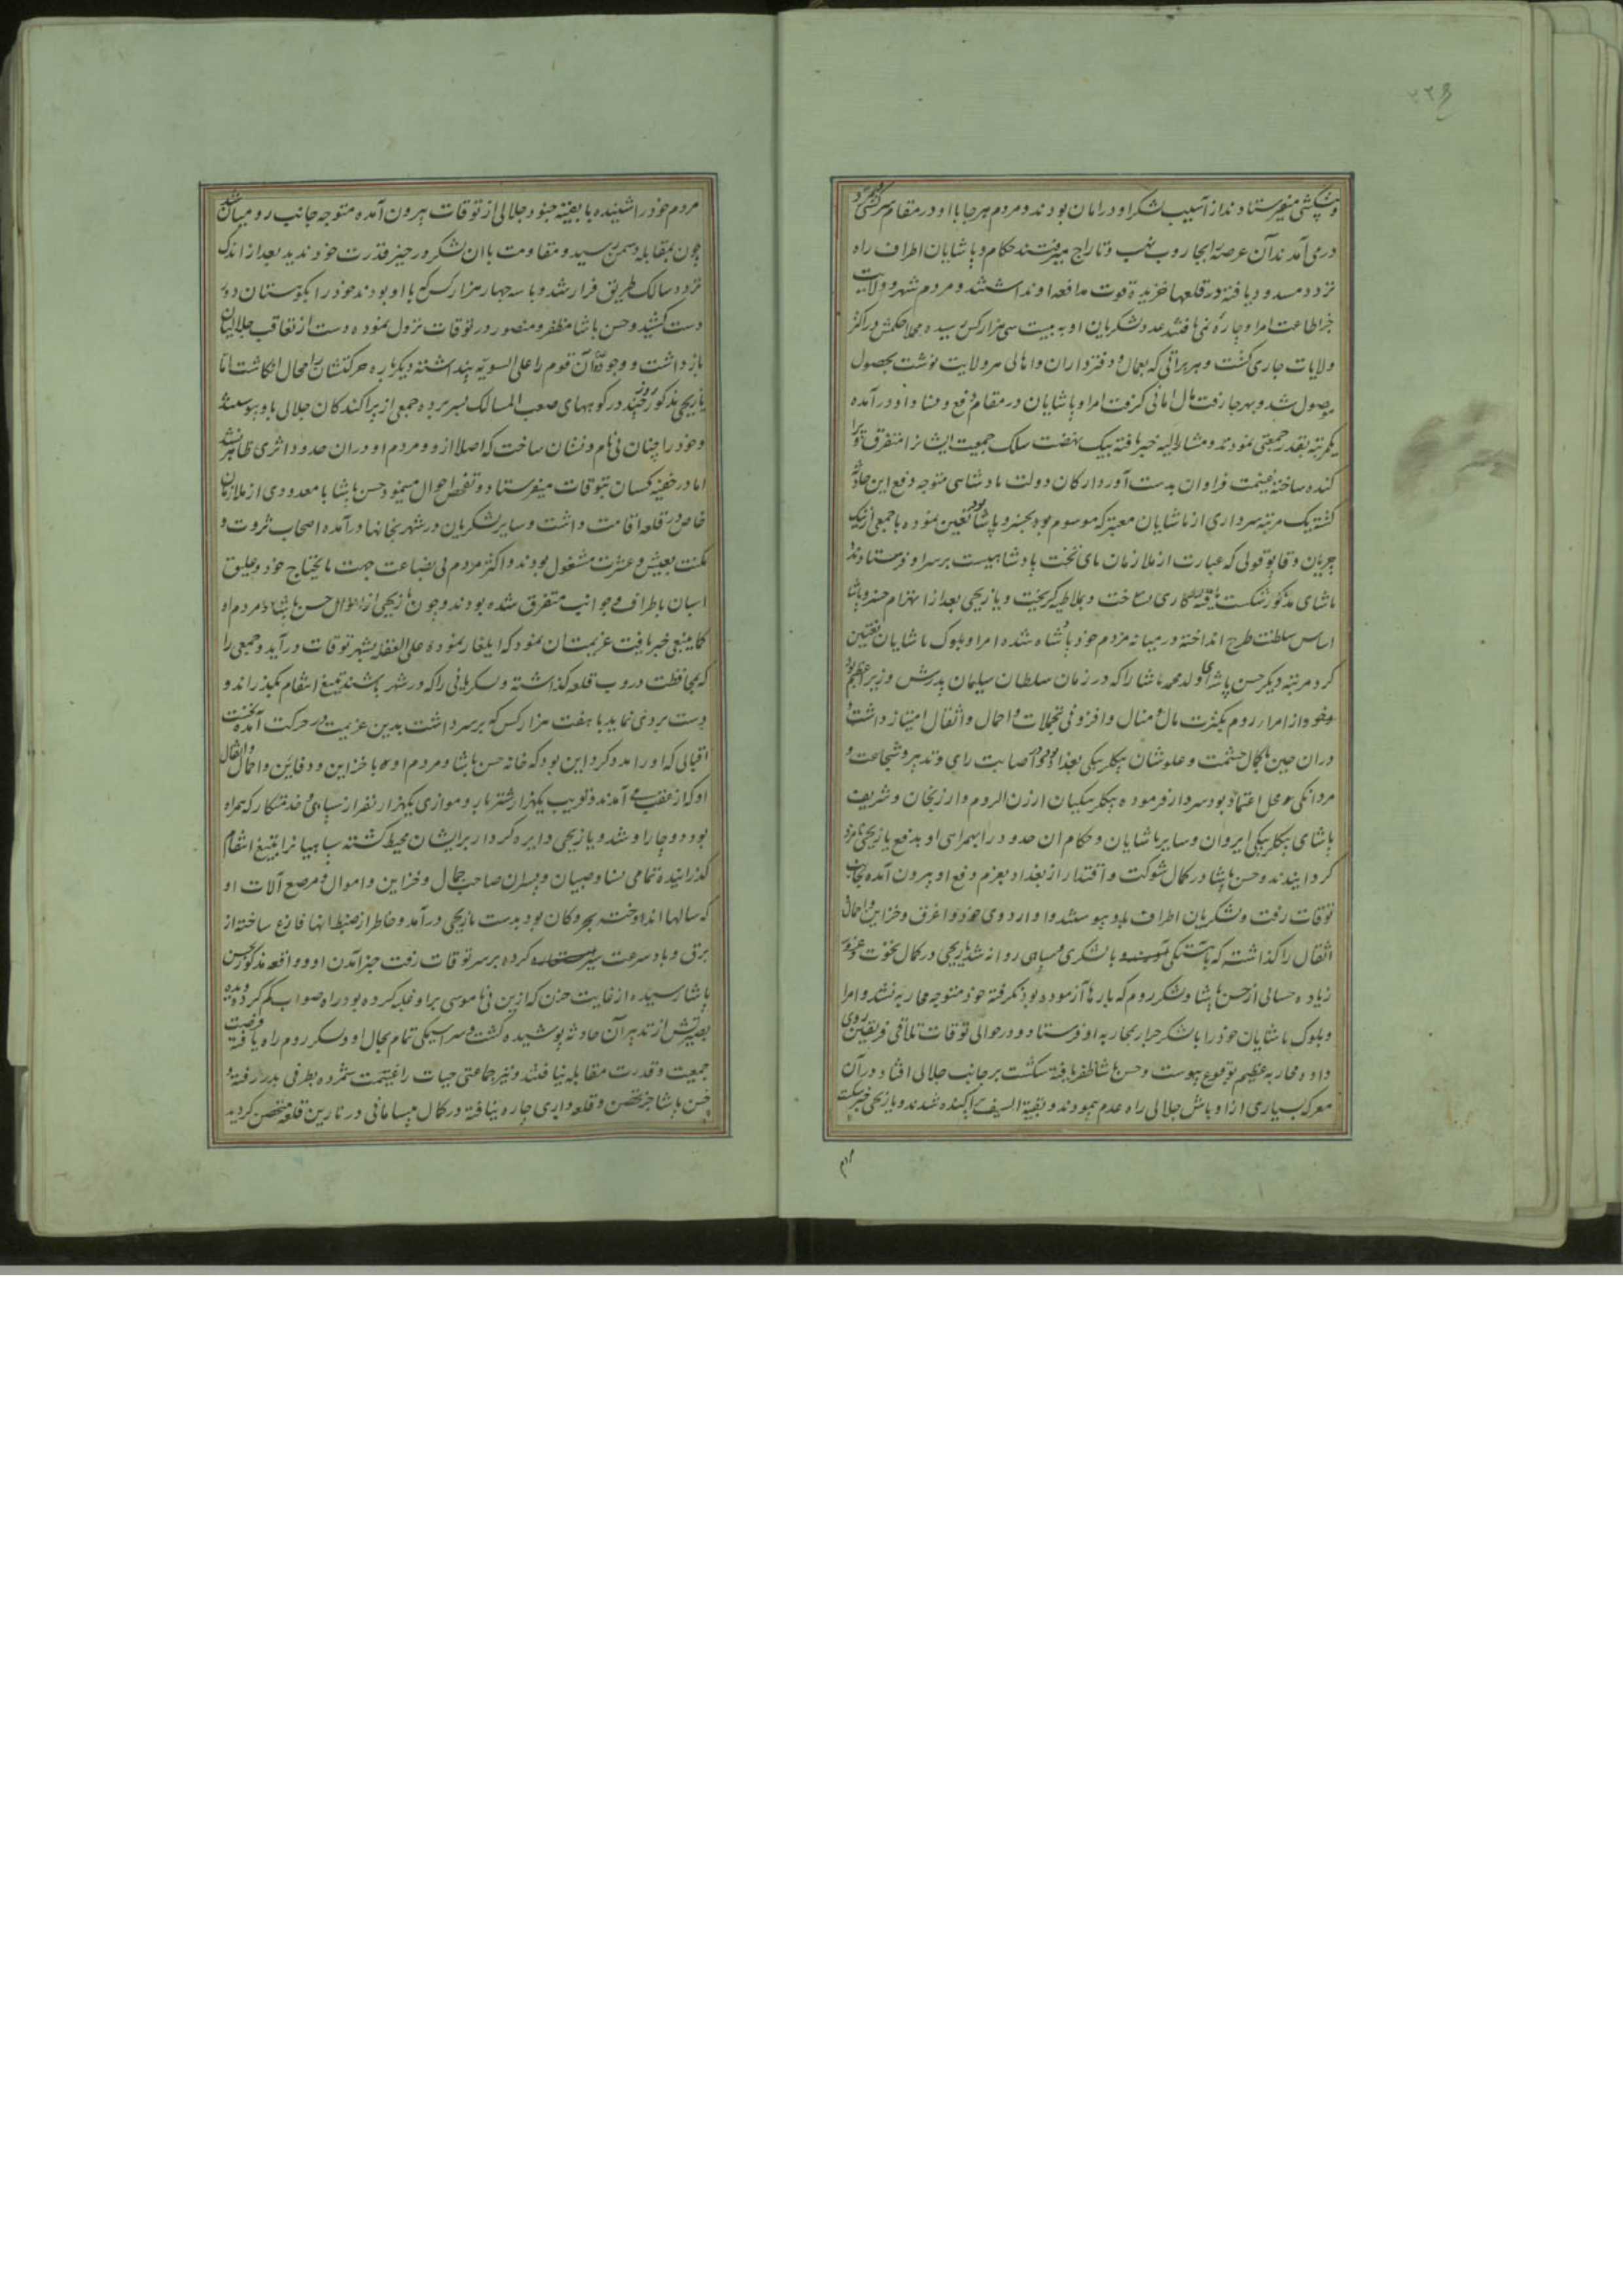 و پیشکشی میفرستادند از آسیب لشکر او در امان بودند و مردم هر جا با او در مقام سرکشی
در می آمدند آن عرصه را بجاروب نهب و تاراج میرفتند حکام و پاشایان اطراف راه
تردد مسدود یافته در قلعها خزیده قوت مدافعه او نداشتند و مردم شهر و ولایت
جز اطاعت امر او چاره نمی یافتند عدد لشکریان او به بیست سی هزار کس رسیده حکمش در اکثر
ولایات جاری گشت و هر براتی که بعمال و دفترداران و اهالی هر ولایت نوشت بحصول
موصول شد و بهر جا رفت مال امانی گرفت امرا و پاشایان در مقام دفع و فساد او درآمده
یکمرتبه بقدر جمعیتی نمودند و مشارالیه خبر یافته بیک نهضت سلک جمعیت ایشانرا متفرق و پرا
کنده ساخته غنیمت فراوان بدست آورد ارکان دولت پادشاهی متوجه دفع این حادثه
گشته یک مرتبه سرداری از پاشایان معتبر که موسوم بود بخسرو پاشا تعیین نموده با جمعی از ینک
چریان و قاپو قولی که عبارت از ملازمان پای تخت پادشاهیست بر سر او فرستادند
پاشای مذکور شکست یافته کاری نساخت و بملاطیه گریخت و یازیجی بعد از انهزام خسرو پاشا
اساس سلطنت طرح انداخته در میانه مردم خود پادشاه شده امرا و بلوک پاشایان تعیین
کرد مرتبه دیگر حسن پاشای ولد محمد پاشا را که در زمان سلطان سلیمان پدرش وزیر اعظم بود
و خود از امراء روم بکثرت مال و منال و افزونی تجملات و احمال و اثقال امتیاز داشت
در ان حین بکمال حشمت و علو شان بیگلربیگی بغداد بود و اصابت رای و تدبیر و شجاعت و
مردانگی او محل اعتماد بود سردار فرموده بیگلربیگیان ارزن الروم و ارزنجان و شریف
پاشای بیگلربیگی ایروان و سایر پاشایان و حکام ان حدود را بهمراهی او بدفع یازیجی نامزد
گردانیدند و حسن پاشا در کمال شوکت و اقتدار از بغداد بعزم دفع او بیرون آمده بجانب
توقات رفت و لشکریان اطراف بدو پیوستند و او اردوی خود و اغرق و خزاین و احمال
اثقال را گذاشت که باهستگی آیند و با لشکری سپاهی روانه شد یازیجی در کمال نخوت و غرور
زیاده حسابی از حسن پاشا و لشکر روم که بارها آزموده بود نگرفته خود متوجه محاربه نشد و امرا
و بلوک پاشایان خود را با لشکر جرار بمحاربه او فرستاد و در حوالی توقات تلاقی فریقین روی
داده محاربه عظیم بوقوع پیوست و حسن پاشا ظفر یافته شکست بر جانب جلالی افتاد و در آن
معرکه بسیاری از اوباش جلالی راه عدم پیمودند و بقیة السیف پراکنده شدند و یازیجی خبر شکست
مردم
مردم خود را شنیده با بقیه جنود جلالی از توقات بیرون آمده متوجه جانب رومیان شد
چون بمقابله دشمن رسید و مقاومت با ان لشکر در حیز قدرت خود ندید بعد از اندک
تردد سالک طریق فرار شد و با سه چهار هزار کس که با او بودند خود را بکوهستان دور
دست کشید و حسن پاشا مظفر و منصور در توقات نزول نموده دست از تعاقب جلالیان
بازداشت و وجود آن قوم را علی السویه پنداشته دیگرباره حرکتشان را محال انگاشت اما
یازیجی مذکور روزی چند در کوههای صعب المسالک بسر برده جمعی از پراکندکان جلالی باو پیوستند
و خود را چنان بی نام و نشان ساخت که اصلا از و و مردم او در ان حدود اثری ظاهر نشد
اما در خفیه کسان بتوقات میفرستاد و تفحص احوال مینمود حسن پاشا با معدودی از ملازمان
خاص در قلعه اقامت داشت و سایر لشکریان در شهر بخانها درآمده اصحاب ثروت و
مکنت بعیش و عشرت مشغول بودند و اکثر مردم بی بضاعت جهت مایحتاج خود و علیق
اسبان باطراف و جوانب متفرق شده بودند و چون یازیجی از احوال حسن پاشا و مردم او
کماینبغی خبر یافت عزیمت ان نمود که ایلغار نموده علی الغفله بشهر توقات درآید و جمعی را
که بمحافظت دروب قلعه گذاشته و لشکریانی را که در شهر باشند بتیغ انتقام بگذراند و
دست بردی نماید با هفت هزار کس که بر سر داشت بدین عزیمت در حرکت آمده بخت
اقبالی که او را مدد کرد این بود که خانه حسن پاشا و مردم او که با خزاین و دفاین و احمال و اثقال
او که از عقب می آمدند و قریب یکهزار شتر بار و موازی یکهزار نفر از سپاهی و خدمتکار که همراه
بود دوچار او شد و یازیجی دایره کردار بر ایشان محیط گشته سپاهیانرا بتیغ انتقام
گذرانیده تمامی نسا و صبیان و پسران صاحب جمال و خزاین و اموال و مرصع آلات او
که سالها اندوخت بحر و کان بود بدست یازیجی درآمد و خاطر از ضبط انها فارغ ساخته از
برق و باد سرعت سیر کرده بر سر توقات رفت خبر آمدن او و واقعه مذکور بحسن
پاشا رسیده از غایت حزن که ازین بی ناموسی بر او غلبه کرده بود راه صواب گم کرد و دیده
بصیرتش از تدبیر آن حادثه پوشیده گشت و سراسیمگی تمام بحال او و لشکر روم راه یافته فرصت
جمعیت و قدرت مقابله نیافتند و نیز جماعتی حیات را غنیمت شمرده بطرفی بدر رفتند
حسن پاشا جز تحصن و قلعه داری چاره نیافته در کمال بیسامانی در نارین قلعه متحصن گردید